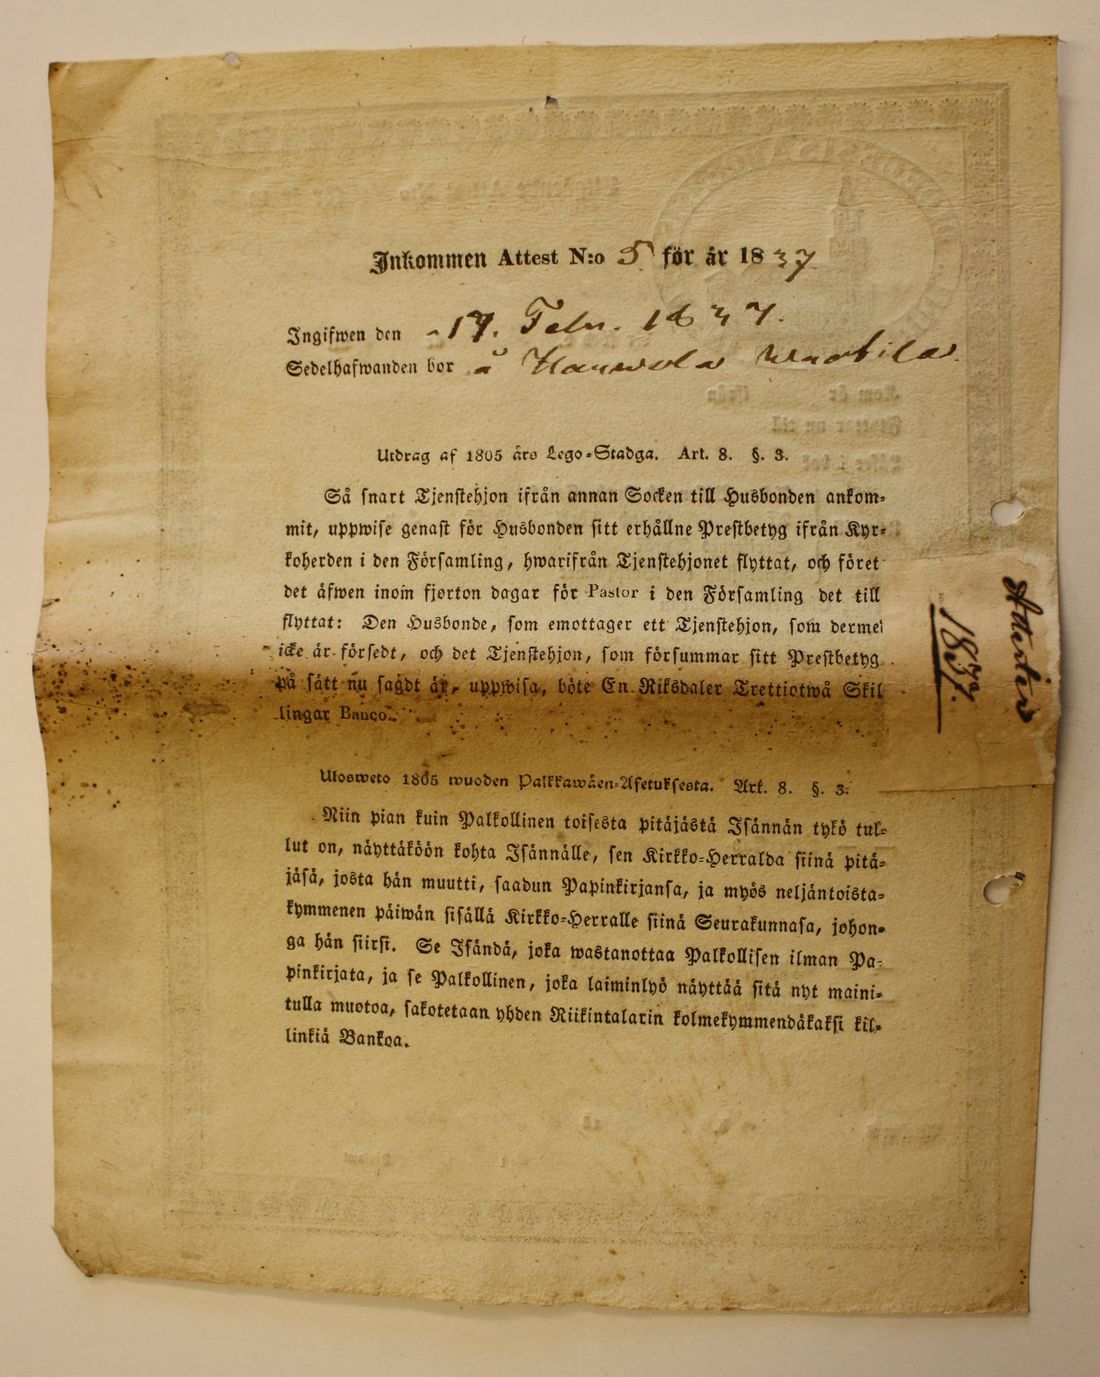 Inkommen Attest N:o 5 för år 1837
Ingifwen den 17. Febr. 1837.
Sedelhafwanden bor å
Utdrag af 1805 års Lego-Stadga. Art. 8. §. 3.
Så snart Tjenstehjon ifrån annan Socken till Husbonden ankom-
mit, uppwise genast för Husbonden sitt erhållne Prestbetyg ifrån Kyr-
koherden i den Församling, hwarifrån Tjenstehjonet flyttat, och föret
det äfwen inom fjorton dagar för Pastor i den Församling det till
flyttat: Den Husbonde, som emottager ett Tjenstehjon, som dermed
icke är försedt, och det Tjenstehjon, som försummar sitt Prestbetyg
på sätt nu sagdt är, uppwisa, böte En Riksdaler Trettiotwå Skil
lingar Banco.
Ulosweto 1805 wuoden Palkkawäen-Asetuksesta. Art. 8. §. 3.
Niin pian kuin Palkollinen toisesta pitäjästä Isännän tykö tul-
lut on, näyttäköön kohta Isännälle, sen Kirkko-Herralda siinä pitä-
jäsä, josta hän muutti, saadun Papinkirjansa, ja myös neljäntoista-
kymmenen päiwän sisällä Kirkko-Herralle siinä Seurakunnasa, johon-
ga hän siirsi. Se Isändä, joka wastanottaa Palkollisen ilman Pa-
pinkirjata, ja se Palkollinen, joka laiminlyö näyttää sitä nyt maini-
tulla muotoa, sakotetaan yhden Riikintalarin kolmekymmendäkaksi kil-
linkiä Bankoa.
Attester
1837.